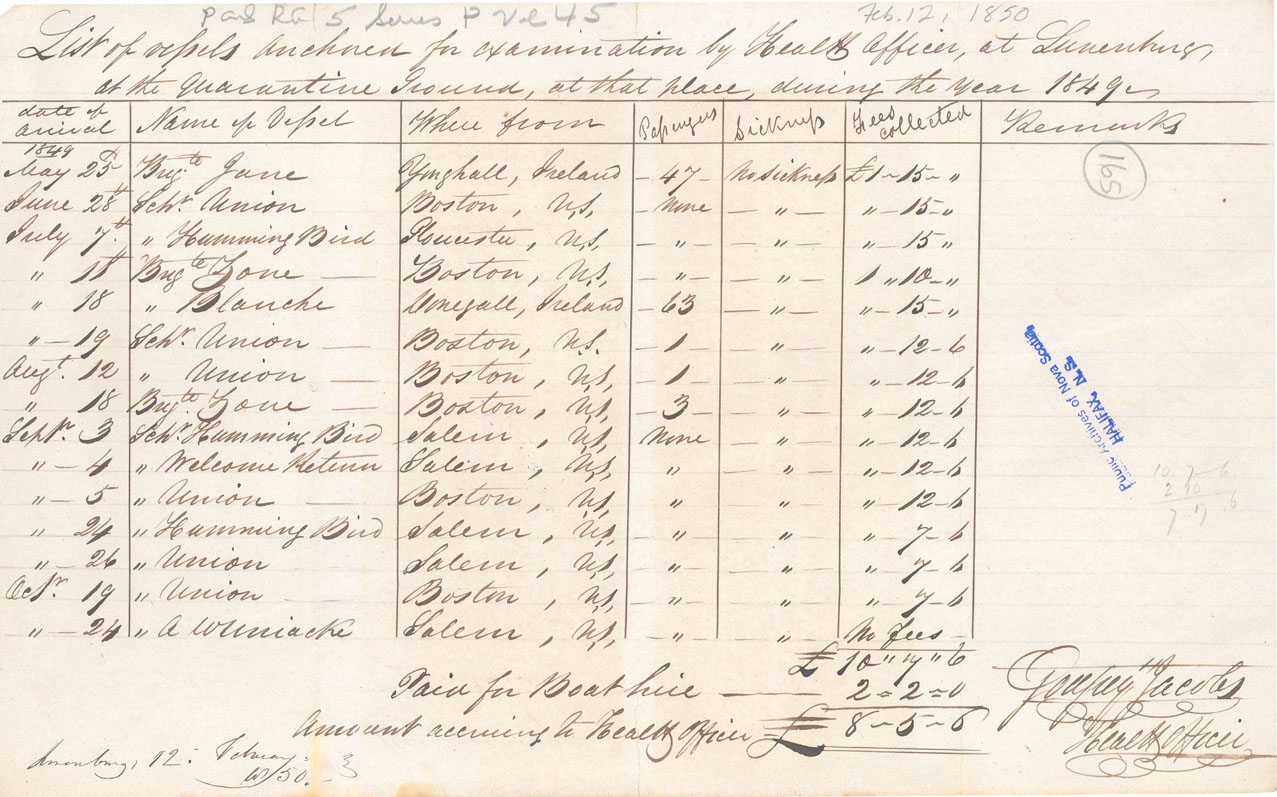 PANS RG 5 Series P Vol 45
Feb. 12, 1850
List of vessels anchored for examination by Health Officer, at Lunenburg,
at the Quarantine Ground, at that place, during the Year 1849.
date of arrival Name of Vessel Where from Passengers Sickness Fees collected Remarks
1849
May 25th Brigte Jane Youghall, Ireland — 47 — No Sickness £1 — 15 — „
June 28th Schr Union Boston, U.S. — None — „ — „ — 15 — „
July 7th „ Humming Bird Gloucester, U.S. — „ — — „ — „ — 15 „
„ Brigte Boston, U.S. — „ — — „ — 1 „ 10 — „
„ 18 „ Blanche Donegall, Ireland — 63 — „ — „ — 15 — „
„ — 19 Schr Union — Boston, U.S. — 1 — — „ — „ — 12 — 6
Augt. 12 „ Union — Boston, U.S. — 1 — — „ — „ — 12 — 6
„ 18 Brigte — Boston, U.S. — 3 — — „ — „ — 12 — 6
Septr. 3 Schr Humming Bird Salem, U.S. None — „ — „ — 12 — 6
„ — 4 „ Welcome Return Salem, U.S. „ — „ — „ — 12 — 6
„ — 5 „ Union — Boston, U.S. „ — „ — „ — 12 — 6
„ — 24 „ Humming Bird Salem, U.S. „ — „ — „ — 7 — 6
„ — 26 „ Union Salem, U.S. — „ — — „ — „ — 7 — 6
Octr. 19 „ Union — Boston, U.S. — „ — — „ — „ — 7 — 6
„ — 24 „ A Uniacke Salem, U.S. — „ — — „ — No Fees —
£ 10 „ 7 „ 6
Paid for Boat hire — 2 = 2 = 0
Amount accruing to Health Officer £ 8 — 5 — 6
Godfrey Jacobs
Health Officer
Lunenburg, 12: February
1850
165
Public Archives of Nova Scotia
HALIFAX, N.S.
10 7 — 6
2 10
7 17 6